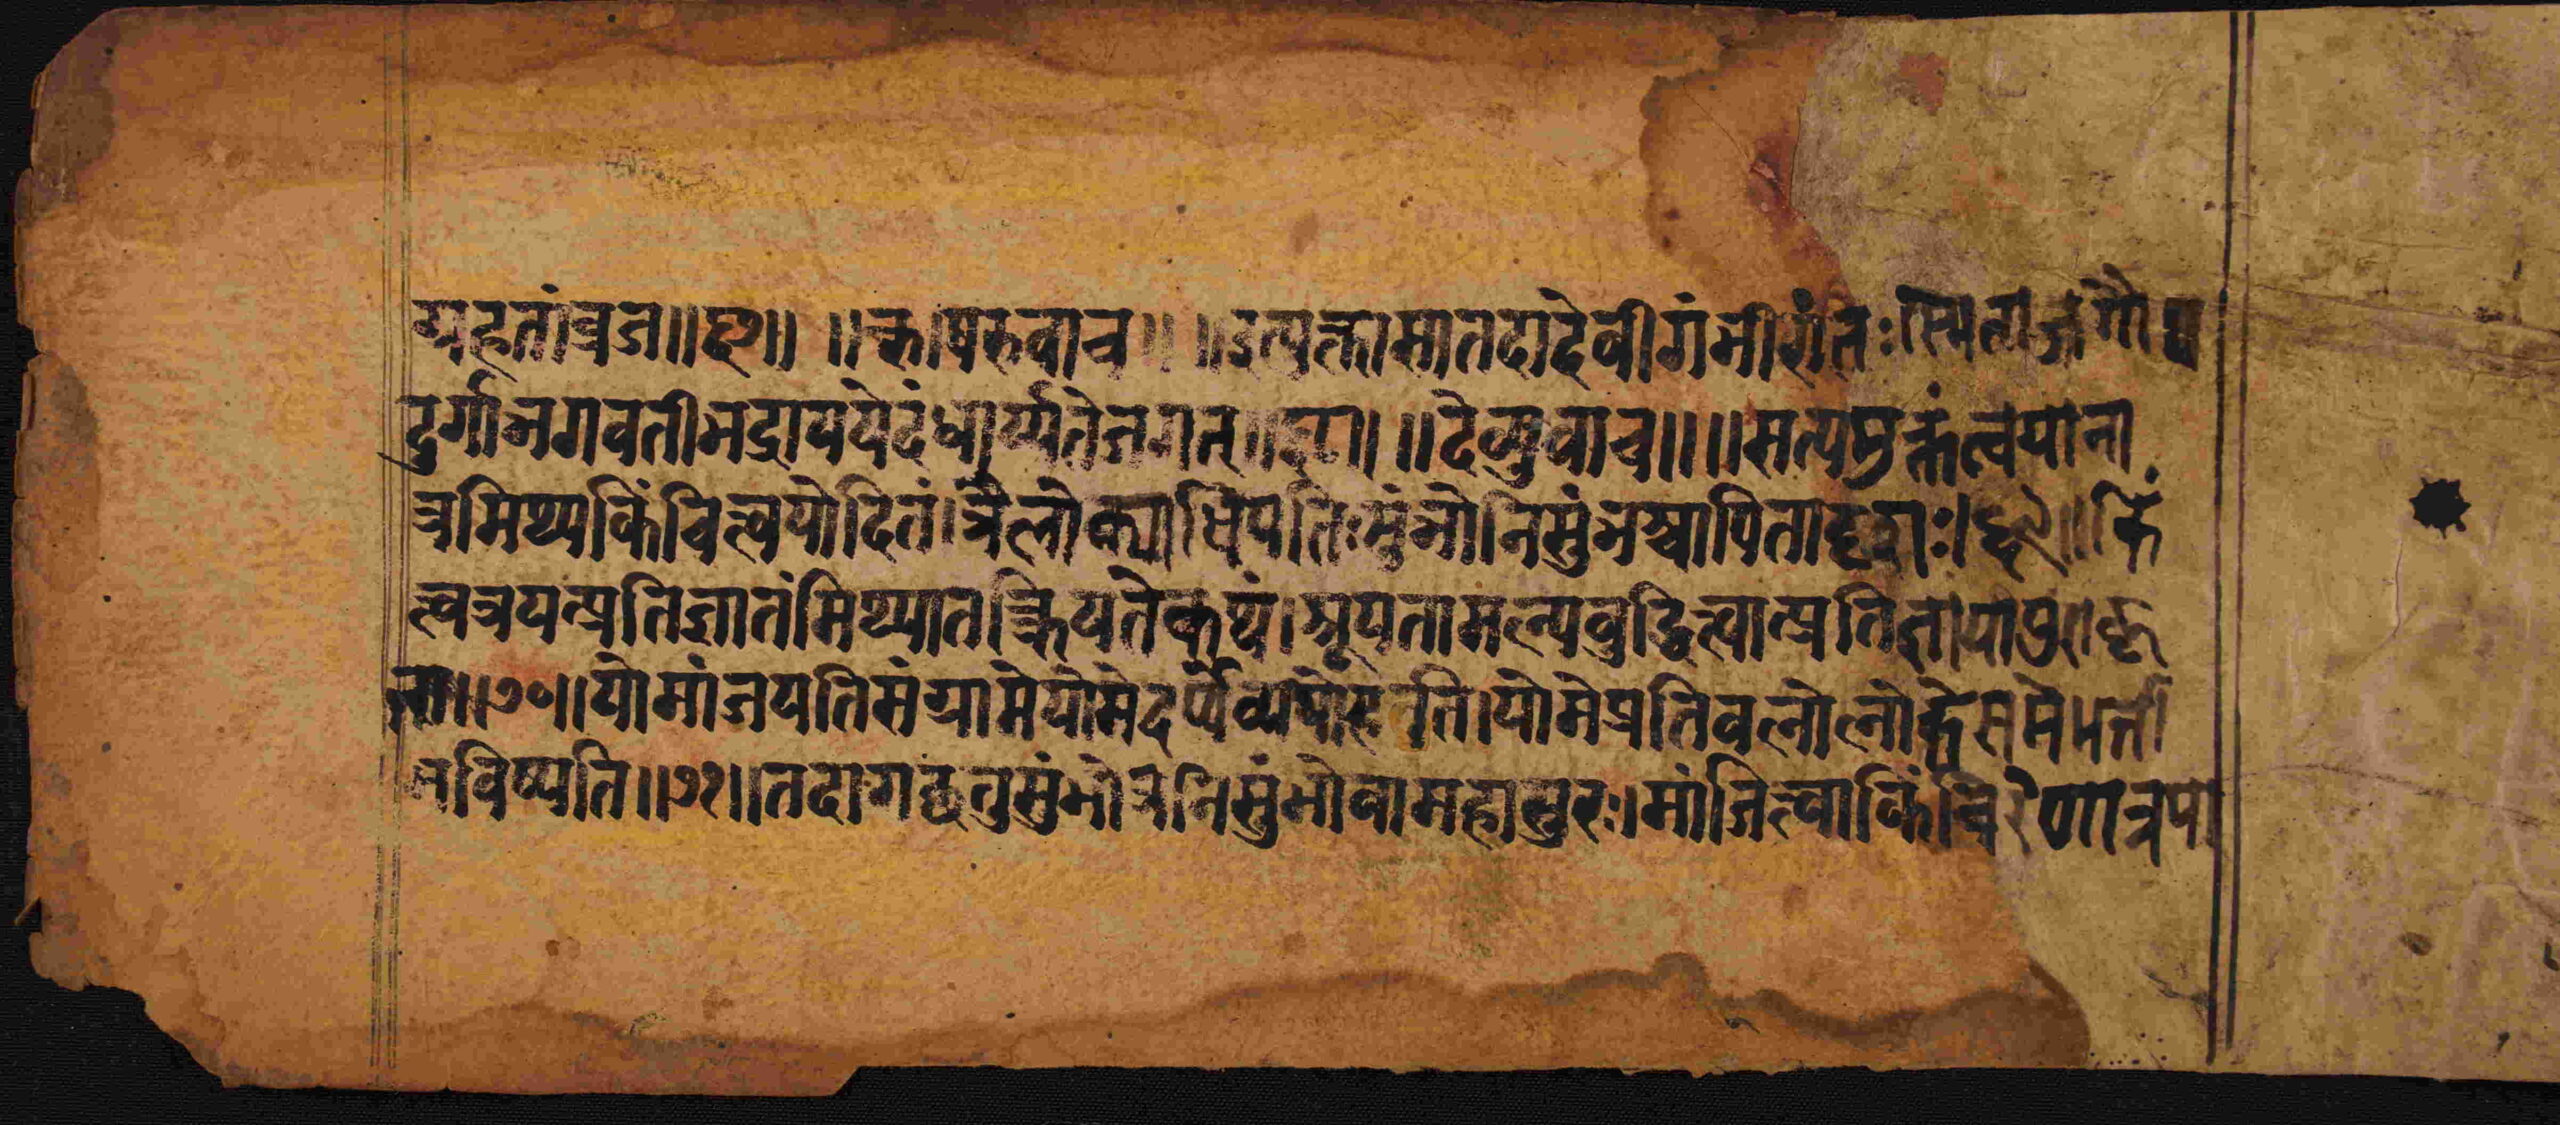 ग्रहतांव्रज॥६७॥ ॥ऋषिरुवाच॥ ॥इत्युक्तासातदादेवीगंभीरांतःस्मिताजगौ
दुर्गाभगवतीभद्राययेदंधार्य्यतेजगत्॥६८॥ ॥देव्युवाच॥ ॥सत्यमुक्तंत्वयाना
त्रमिथ्यकिंचित्त्वयोदितं।त्रैलोक्याधिपतिःसुंभोनिसुंभश्चापितादृशः।६९॥किं
त्वत्रयत्प्रतिज्ञातंमिथ्यातत्क्रियतेकथं।श्रूयतामल्पबुद्धित्वात्प्रतिज्ञायापुराकृ
ता॥७०॥योमांजयतिसंग्रामेयोमेदर्प्पंव्यपोहति।योमेप्रतिबलोलोकेसमेभर्त्ता
भविष्यति॥७१॥तदागच्छतुसुंभोत्रनिसुंभोवामहासुरः।मांजित्वाकिंचिरेणात्रपा